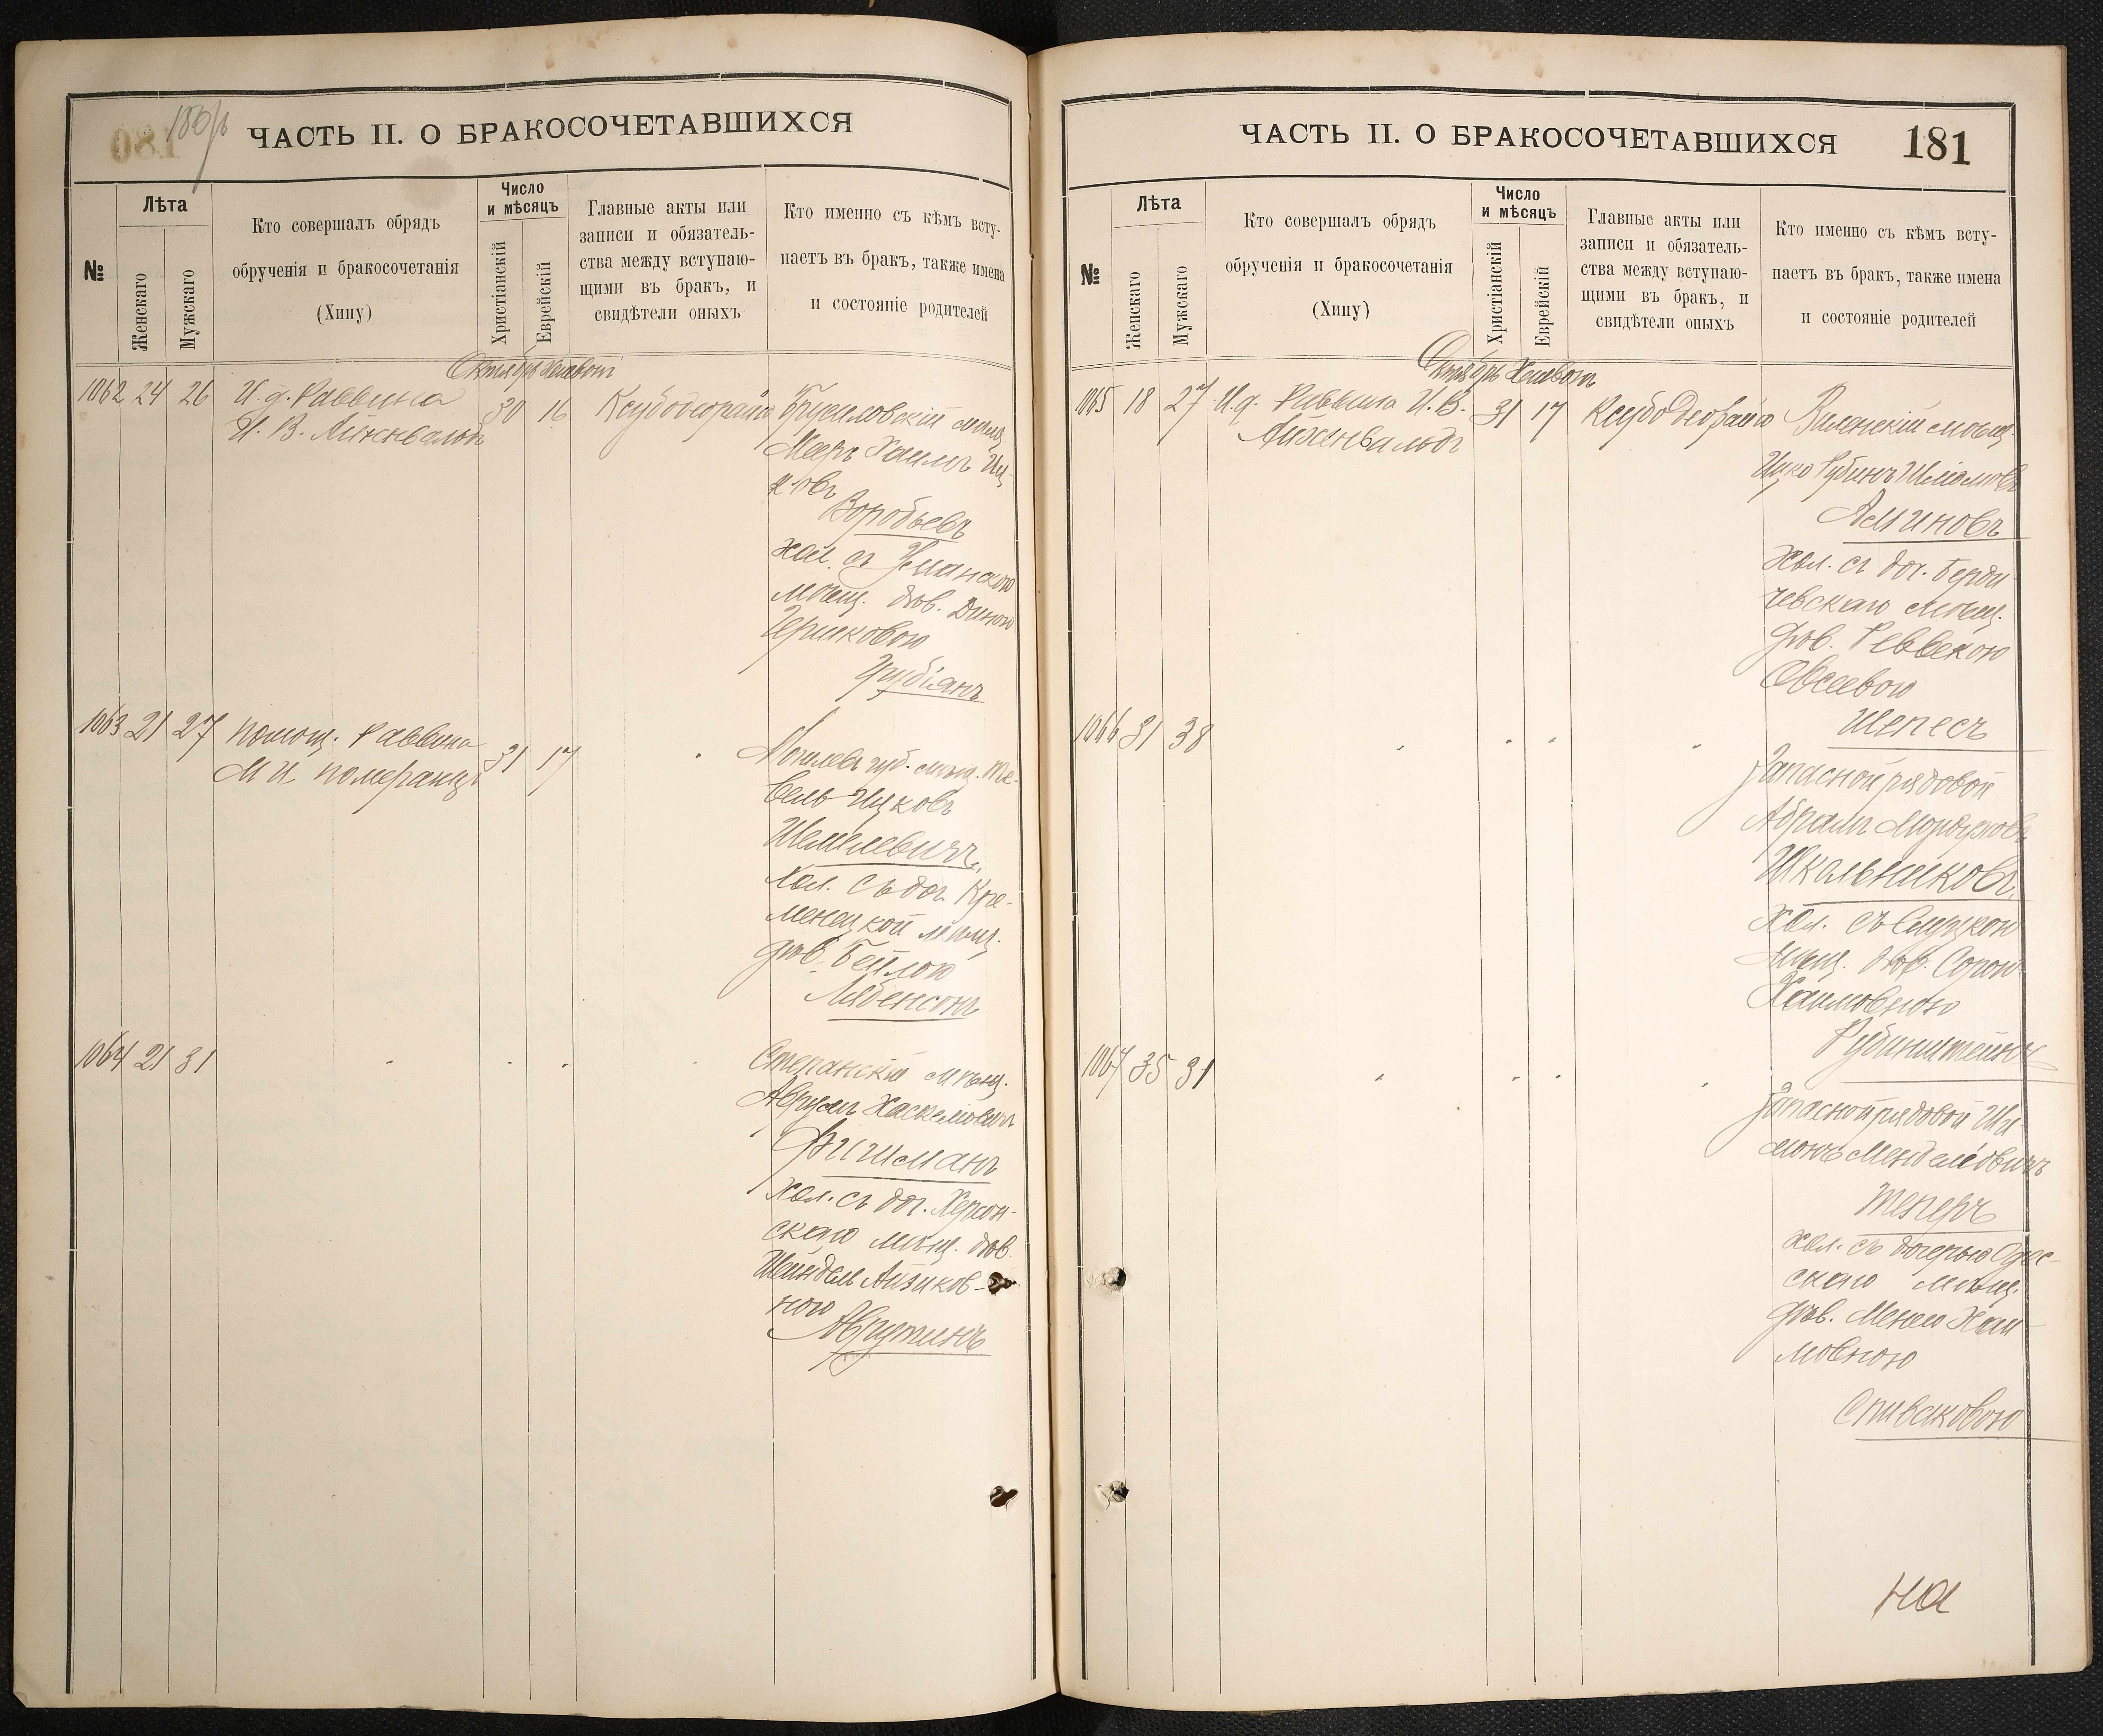 180
180 об
ЧАСТЬ II. О БРАКОСОЧЕТАВШИХСЯ
№
Лѣта
Женскаго
Мужскаго
Кто совершалъ обрядъ
обрученія и бракосочетанія
(Хипу)
Число
и мѣсяцъ
Христіанскій
Еврейскій
Главные акты или
записи и обязатель-
ства между вступаю-
щими въ бракъ, и
свидѣтели оныхъ
Кто именно съ кѣмъ всту-
паетъ въ бракъ, также имена
и состояніе родителей
Октябрь Хешвонъ
1062 24 26 И. д. Раввина
И. В. Айхенвальдъ
30 16
Брусиловскій мѣщ.
Мееръ Хаимъ Иц-
ковъ
Воробьевъ
хол. съ Уманскою
мѣщ. дѣв. Диною
Гершковою
1063 21 27 Помощ. Раввина
М И Померанцъ
31 17
Могилев. губ. мѣщ. Те-
вель Ицковъ
Шемелевичъ,
хол. съ доч. Кре-
менецкой мѣщ.
дѣв. Бейлою
Либенсонъ
1064 21 31
Степанскій мѣщ.
Аврумъ Хаскелевичъ
Фишманъ
хол. съ доч. Херсон-
скаго мѣщ. дѣв.
Шейндель Айзиков-
ною
Аврутинъ
ЧАСТЬ II. О БРАКОСОЧЕТАВШИХСЯ
181
№
Лѣта
Женскаго
Мужскаго
Кто совершалъ обрядъ
обрученія и бракосочетанія
(Хипу)
Число
и мѣсяцъ
Христіанскій
Еврейскій
Главные акты или
записи и обязатель-
ства между вступаю-
щими въ бракъ, и
свидѣтели оныхъ
Кто именно съ кѣмъ всту-
паетъ въ бракъ, также имена
и состояніе родителей
Октябрь Хешвонъ
1065 18 27 И. д. Раввина И. В.
Айхенвальдъ
31 17
Виленскій мѣщ.
Ицко Рубинъ Шліомовъ
Аминовъ
хол. съ доч. Берди-
чевскаго мѣщ.
дѣв. Реввекою
Овсеевою
Шепесъ
1066 31 38
Запасной рядовой
Абрамъ Мордуховъ
Школьниковъ,
хол. съ Слуцкою
мѣщ. дѣв. Сорою
Хаимовною
Рубинштейнъ
1067 35 31
Запасной рядовой Ши-
монъ Менделевичъ
Теперъ
хол. съ дочерью Одес-
скаго мѣщ.
дѣв. Менею Хаи-
мовною
Спиваковою
На